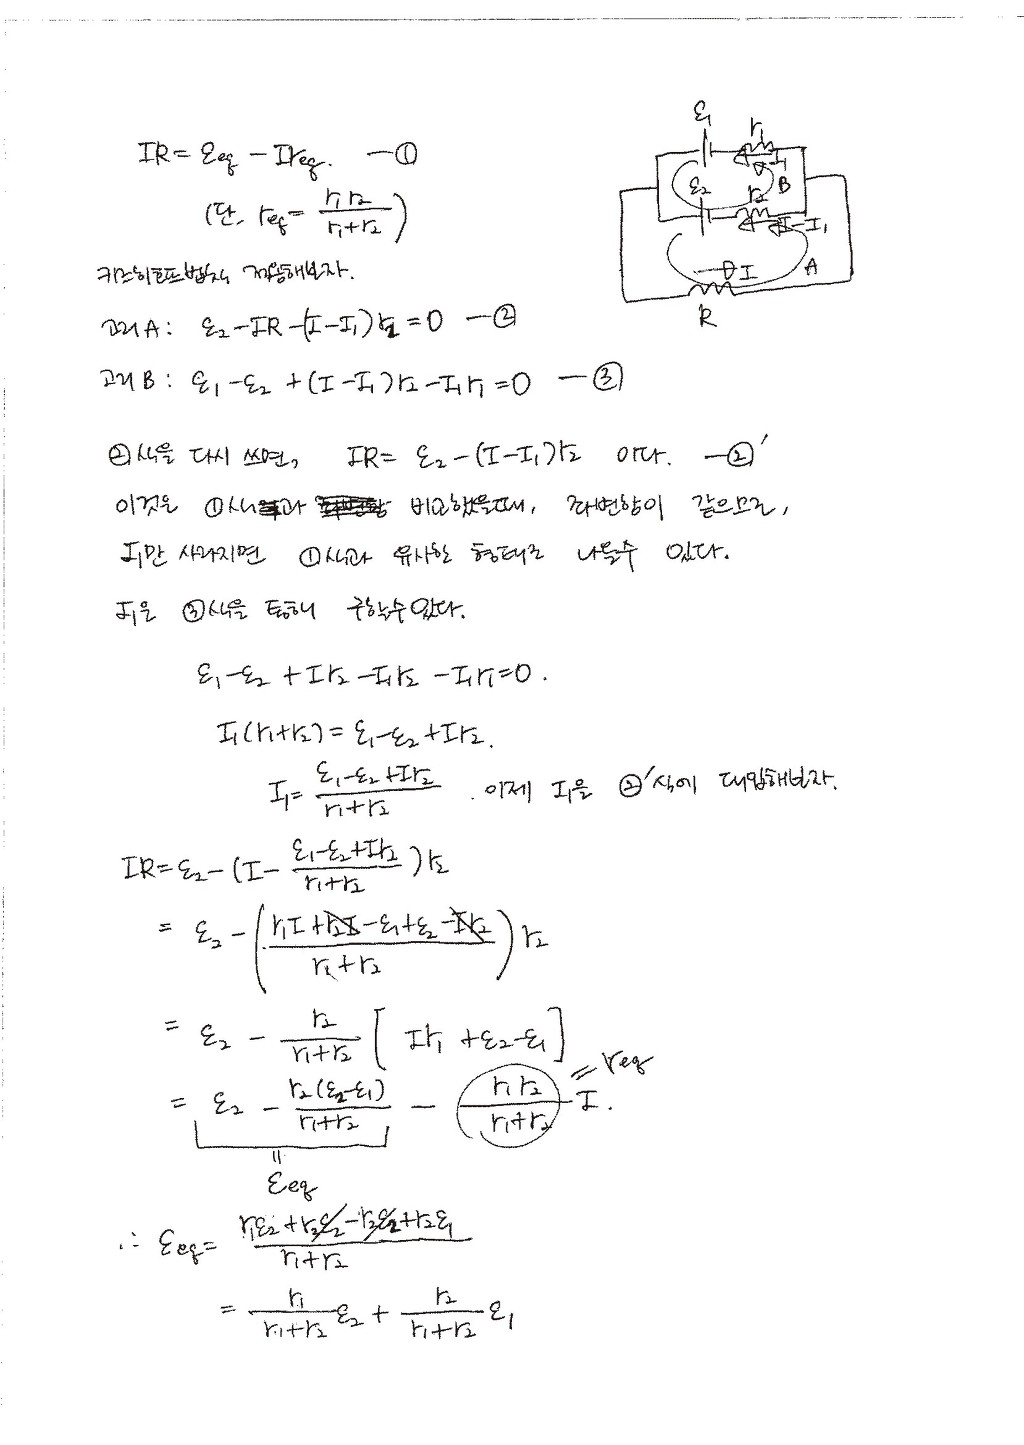 IR = ε_eq − Ir_eq. —①
(단, r_eq = r₁r₂/(r₁+r₂))
키르히호프법칙 적용해보자.
고리A : ε₂−IR−(I−I₁)r₂=0 —②
고리B : ε₁−ε₂+(I−I₁)r₂−I₁r₁=0 —③
②식을 다시 쓰면, IR= ε₂−(I−I₁)r₂ 이다. —②′
이것을 ①식과 비교했을때, 좌변항이 같으므로,
I₁만 사라지면 ①식과 유사한 형태로 나올수 있다.
I₁은 ③식을 통해 구할수있다.
ε₁−ε₂+Ir₂−I₁r₂−I₁r₁=0.
I₁(r₁+r₂)=ε₁−ε₂+Ir₂.
I₁= (ε₁−ε₂+Ir₂)/(r₁+r₂) . 이제 I₁을 ②′식에 대입해보자.
IR=ε₂−(I− (ε₁−ε₂+Ir₂)/(r₁+r₂))r₂
= ε₂−((r₁I+r₂I−ε₁+ε₂−Ir₂)/(r₁+r₂))r₂
= ε₂ − r₂/(r₁+r₂) [Ir₁+ε₂−ε₁]
= ε₂ − r₂(ε₂−ε₁)/(r₁+r₂) − r₁r₂/(r₁+r₂) I.
= r_eq
= ε_eq
∴ ε_eq= (r₁ε₂+r₂ε₂−r₂ε₂+r₂ε₁)/(r₁+r₂)
= r₁/(r₁+r₂) ε₂ + r₂/(r₁+r₂) ε₁
ε₁
r₁
I₁
B
ε₂
r₂
I−I₁
A
I
R